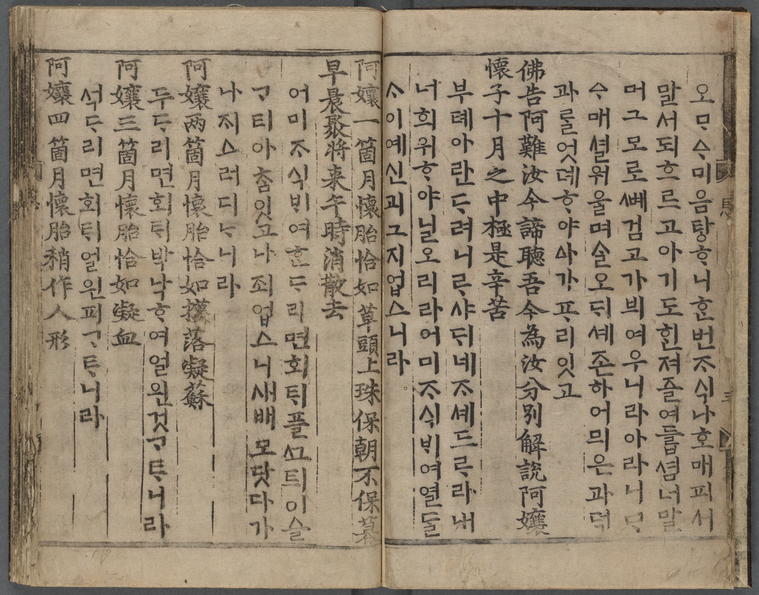 오ᄆᆞᄉᆞ미음탕ᄒᆞ니ᄒᆞᆫ번ᄌᆞ식나호매피서
말서되흐르고아기도힌져즐여듧셤너말
머그모로ᄲᅧ검고가븨여우니라아라니ᄆᆞ
ᄉᆞ매셜워울며ᄉᆞᆯ오ᄃᆡ셰존하어믜은과덕
과ᄅᆞᆯ엇데ᄒᆞ야사가ᄑᆞ리잇고
佛告阿難汝今諦聽吾今為汝分別解說阿孃
懷子十月之中極是辛苦
부톄아란ᄃᆞ려니ᄅᆞ샤ᄃᆡ네ᄌᆞ셰드ᄅᆞ라내
너희위ᄒᆞ야닐오리라어미ᄌᆞ식ᄇᆡ여열ᄃᆞᆯ
ᄉᆞ이예신괴그지업스니라。
阿孃一箇月懷胎恰如草頭上珠保朝不保暮
早晨聚將来午時消散去
어미ᄌᆞ식ᄇᆡ여ᄒᆞᆫᄃᆞ리면회ᄐᆡ플ᄭᅳᄐᆡ이슬
ᄀᆞ티아ᄎᆞᆷ잇고나죄업스니새배모닷다가
나ᄌᆡ스러디ᄂᆞ니라
阿孃兩箇月懷胎恰如撲落凝蘇
두ᄃᆞ리면회ᄐᆡ박낙ᄒᆞ여얼윈것ᄀᆞᄐᆞ니라
阿孃三箇月懷胎恰如凝血
석ᄃᆞ리면회ᄐᆡ얼윈피ᄀᆞᄐᆞ니라
阿孃四箇月懷胎稍作人形